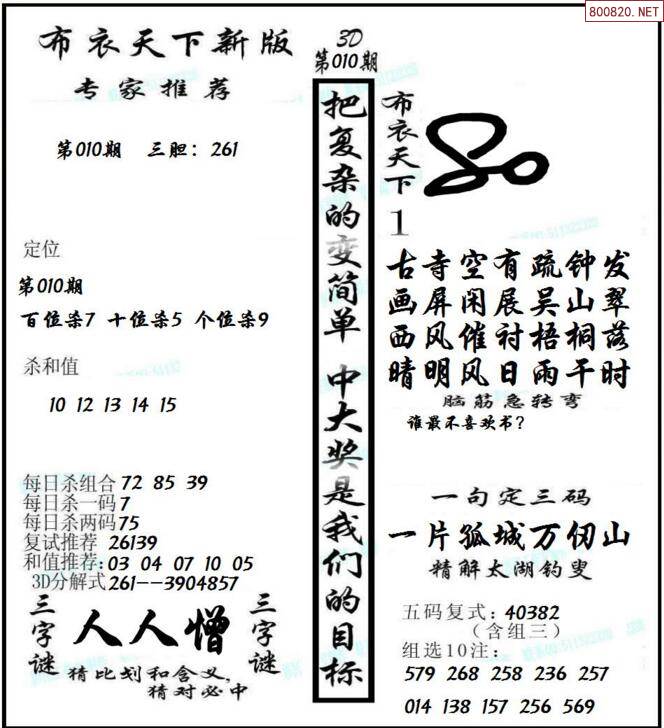 800820.NET
布衣天下新版
专家推荐
第010期 三胆：261
定位
第010期
百位杀7 十位杀5 个位杀9
杀和值
10 12 13 14 15
每日杀组合 72 85 39
每日杀一码 7
每日杀两码 75
复试推荐 26139
和值推荐：03 04 07 10 05
3D分解式 261--3904857
三字谜
人人憎
三字谜
猜比划和含义,
猜对必中
3D
第010期
把复杂的变简单 中大奖是我们的目标
布衣天下
1
古寺空有疏钟发
画屏闲展吴山翠
西风催衬梧桐落
晴明风日雨干时
脑筋急转弯
谁最不喜欢书？
一句定三码
一片孤城万仞山
精解太湖钓叟
五码复式：40382
（含组三）
组选10注：
579 268 258 236 257
014 138 157 256 569